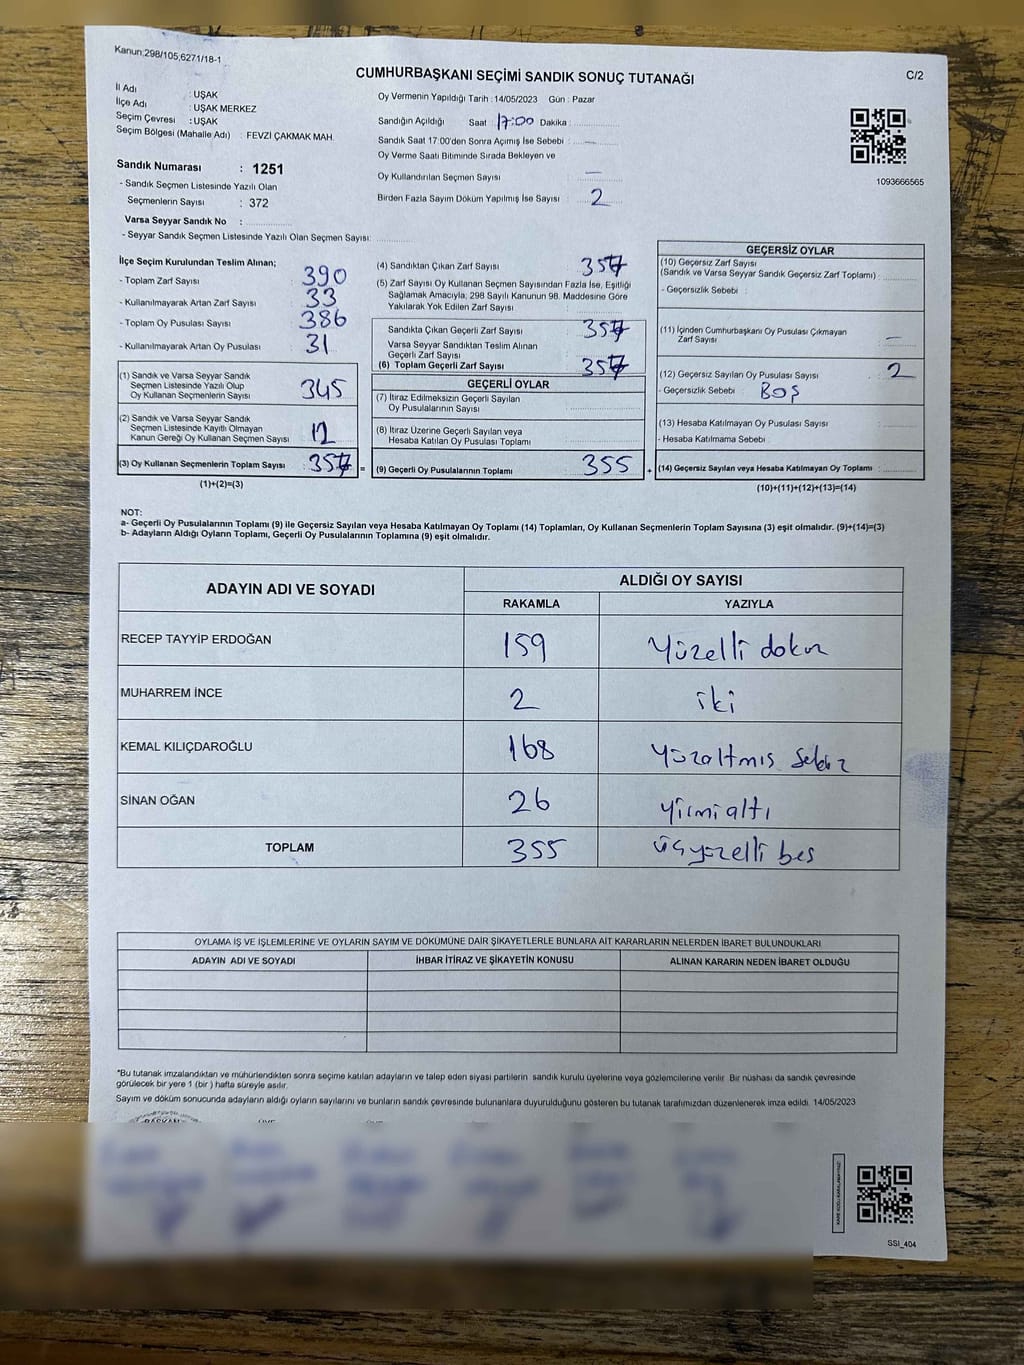 Kanun;298/105;6271/18-1
CUMHURBAŞKANI SEÇİMİ SANDIK SONUÇ TUTANAĞI
C/2
İl Adı : UŞAK
İlçe Adı : UŞAK MERKEZ
Seçim Çevresi : UŞAK
Seçim Bölgesi (Mahalle Adı) : FEVZİ ÇAKMAK MAH.
Sandık Numarası : 1251
- Sandık Seçmen Listesinde Yazılı Olan
Seçmenlerin Sayısı : 372
Varsa Seyyar Sandık No :
- Seyyar Sandık Seçmen Listesinde Yazılı Olan Seçmen Sayısı:
Oy Vermenin Yapıldığı Tarih : 14/05/2023 Gün : Pazar
Sandığın Açıldığı Saat 17:00 Dakika :
Sandık Saat 17:00'den Sonra Açımış İse Sebebi : —
Oy Verme Saati Bitiminde Sırada Bekleyen ve
Oy Kullandırılan Seçmen Sayısı —
Birden Fazla Sayım Döküm Yapılmış İse Sayısı : 2
1093666565
İlçe Seçim Kurulundan Teslim Alınan;
- Toplam Zarf Sayısı : 390
- Kullanılmayarak Artan Zarf Sayısı : 33
- Toplam Oy Pusulası Sayısı : 386
- Kullanılmayarak Artan Oy Pusulası : 31
(1) Sandık ve Varsa Seyyar Sandık
Seçmen Listesinde Yazılı Olup
Oy Kullanan Seçmenlerin Sayısı : 345
(2) Sandık ve Varsa Seyyar Sandık
Seçmen Listesinde Kayıtlı Olmayan
Kanun Gereği Oy Kullanan Seçmen Sayısı : 12
(3) Oy Kullanan Seçmenlerin Toplam Sayısı : 357 =
(1)+(2)=(3)
(4) Sandıktan Çıkan Zarf Sayısı : 357
(5) Zarf Sayısı Oy Kullanan Seçmen Sayısından Fazla İse, Eşitliği
Sağlamak Amacıyla; 298 Sayılı Kanunun 98. Maddesine Göre
Yakılarak Yok Edilen Zarf Sayısı :
Sandıkta Çıkan Geçerli Zarf Sayısı : 357
Varsa Seyyar Sandıktan Teslim Alınan
Geçerli Zarf Sayısı :
(6) Toplam Geçerli Zarf Sayısı : 357
GEÇERLİ OYLAR
(7) İtiraz Edilmeksizin Geçerli Sayılan
Oy Pusulalarının Sayısı :
(8) İtiraz Üzerine Geçerli Sayılan veya
Hesaba Katılan Oy Pusulası Toplamı :
(9) Geçerli Oy Pusulalarının Toplamı : 355 +
GEÇERSİZ OYLAR
(10) Geçersiz Zarf Sayısı
(Sandık ve Varsa Seyyar Sandık Geçersiz Zarf Toplamı) :
- Geçersizlik Sebebi :
(11) İçinden Cumhurbaşkanı Oy Pusulası Çıkmayan
Zarf Sayısı : —
(12) Geçersiz Sayılan Oy Pusulası Sayısı : 2
- Geçersizlik Sebebi : BOŞ
(13) Hesaba Katılmayan Oy Pusulası Sayısı :
- Hesaba Katılmama Sebebi :
(14) Geçersiz Sayılan veya Hesaba Katılmayan Oy Toplamı :
(10)+(11)+(12)+(13)=(14)
NOT:
a- Geçerli Oy Pusulalarının Toplamı (9) ile Geçersiz Sayılan veya Hesaba Katılmayan Oy Toplamı (14) Toplamları, Oy Kullanan Seçmenlerin Toplam Sayısına (3) eşit olmalıdır. (9)+(14)=(3)
b- Adayların Aldığı Oyların Toplamı, Geçerli Oy Pusulalarının Toplamına (9) eşit olmalıdır.
ADAYIN ADI VE SOYADI ALDIĞI OY SAYISI
RAKAMLA YAZIYLA
RECEP TAYYİP ERDOĞAN 159 Yüzelli dokuz
MUHARREM İNCE 2 iki
KEMAL KILIÇDAROĞLU 168 yüzaltmış sekiz
SİNAN OĞAN 26 yirmialtı
TOPLAM 355 üçyüzelli beş
OYLAMA İŞ VE İŞLEMLERİNE VE OYLARIN SAYIM VE DÖKÜMÜNE DAİR ŞİKAYETLERLE BUNLARA AİT KARARLARIN NELERDEN İBARET BULUNDUKLARI
ADAYIN ADI VE SOYADI İHBAR İTİRAZ VE ŞİKAYETİN KONUSU ALINAN KARARIN NEDEN İBARET OLDUĞU
*Bu tutanak imzalandıktan ve mühürlendikten sonra seçime katılan adayların ve talep eden siyasi partilerin sandık kurulu üyelerine veya gözlemcilerine verilir. Bir nüshası da sandık çevresinde
görülecek bir yere 1 (bir ) hafta süreyle asılır.
Sayım ve döküm sonucunda adayların aldığı oyların sayılarını ve bunların sandık çevresinde bulunanlara duyurulduğunu gösteren bu tutanak tarafımızdan düzenlenerek imza edildi. 14/05/2023
BAŞKAN
SSI_404